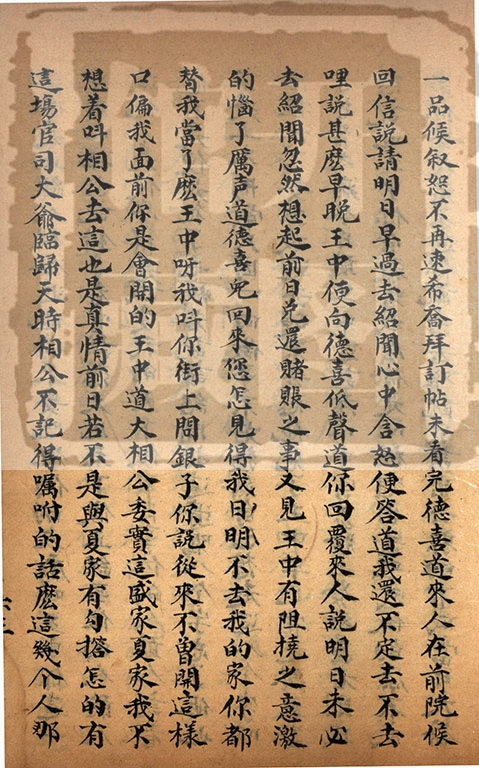 一品候叙恕不再速希喬拜訂帖未看完德喜道來人在前院候
回信說請明日早過去紹聞心中含怒便答道我還不定去不去
哩說甚庅早晚王中便向德喜低聲道你回覆來人說明日未必
去紹聞忽然想起前日兑還賭賬之事又見王中有阻撓之意激
的惱了厲声道德喜兒回來您怎見得我日明不去我的家你都
替我當了麽王中呀我呌你街上問銀子你說從來不曾開這樣
口偏我面前你是會開的王中道大相公委實這盛家夏家我不
想着呌相公去這也是真情前日若不是與夏家有勾搭怎的有
這場官司大爺臨歸天時相公不記得囑咐的話麽這幾个人那